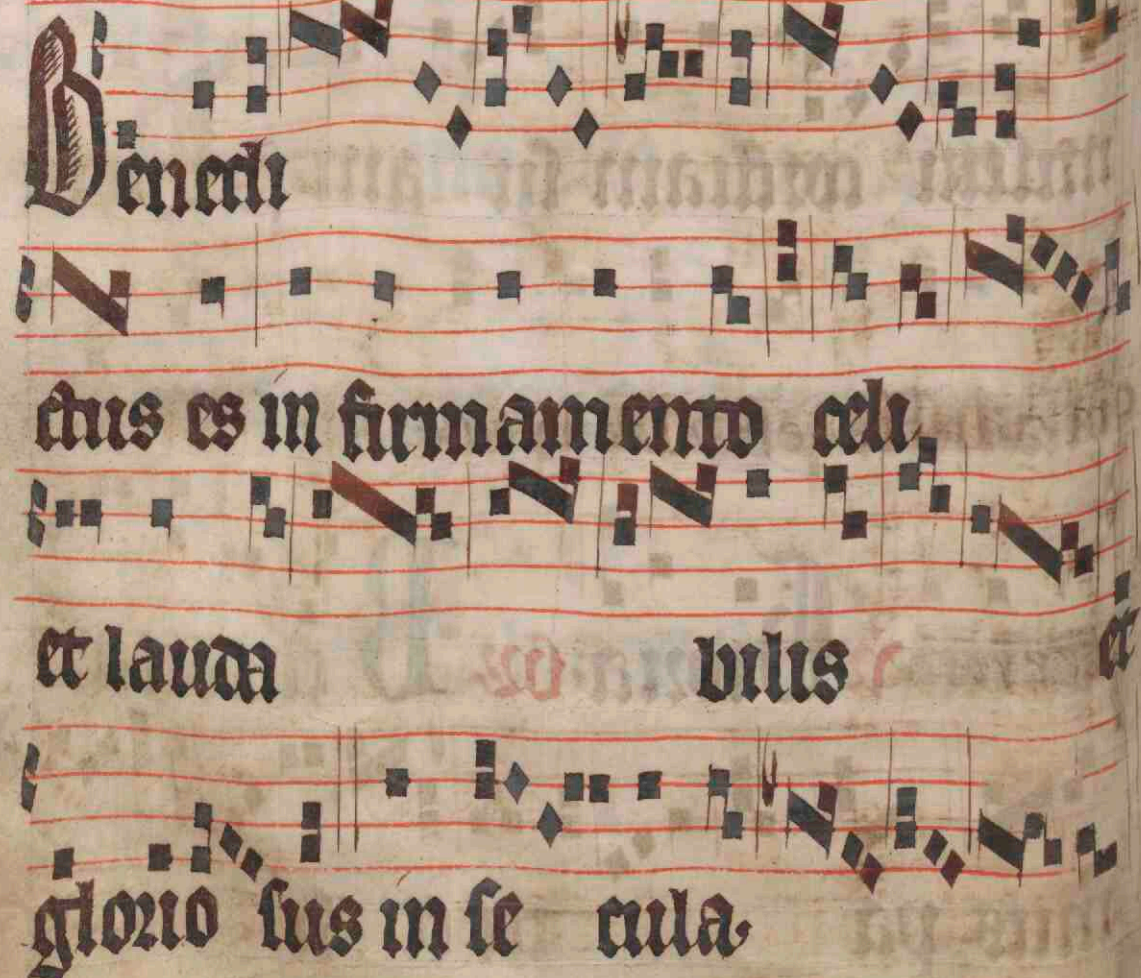 Benedi
ctus es in firmamento celi
et lauda bilis et
glorio sus in se cula